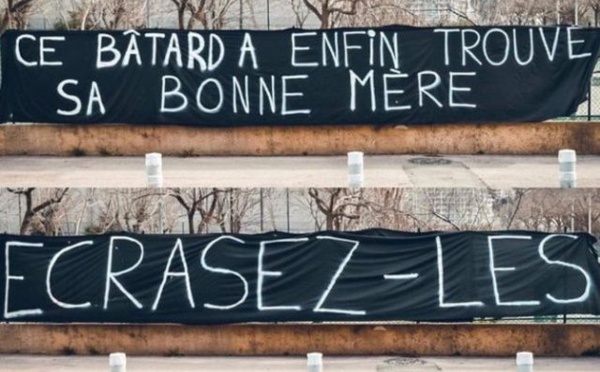 CE BÂTARD A ENFiN TROUVE
SA BONNE MÈRE
ECRASEZ-LES